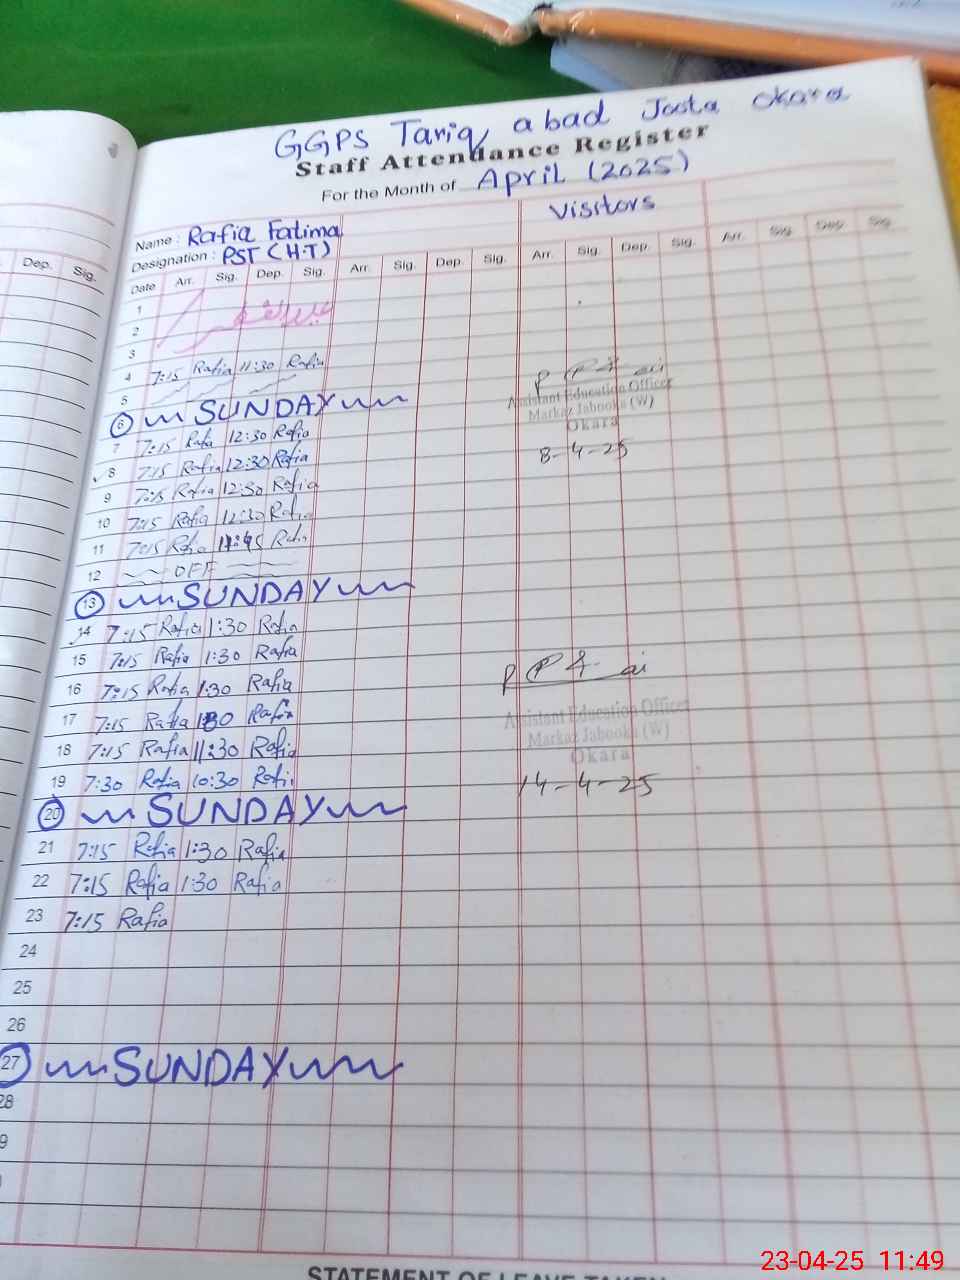 GGPS Tariq abad Josta okara
Staff Attendance Register
For the Month of April (2025)
Name : Rafia Fatima Visitors
Designation : PST (H.T)
Dep. Sig. Date Arr. Sig. Dep. Sig. Arr. Sig. Dep. Sig. Arr. Sig. Dep. Sig. Arr. Sig. Dep. Sig.
1
2
3
4 7:15 Rafia 11:30 Rafia
5
Assistant Education Officer
Markaz Jabooka (W)
Okara
6 SUNDAY
7 7:15 Rafia 12:30 Rafia
8 7:15 Rafia 12:30 Rafia 8-4-25
9 7:15 Rafia 12:30 Rafia
10 7:15 Rafia 12:30 Rafia
11 7:15 Rafia 11:45 Rafia
12 OFF
13 SUNDAY
14 7:15 Rafia 1:30 Rafia
15 7:15 Rafia 1:30 Rafia
16 7:15 Rafia 1:30 Rafia
17 7:15 Rafia 1:30 Rafia
Assistant Education Officer
Markaz Jabooka (W)
Okara
18 7:15 Rafia 11:30 Rafia
19 7:30 Rafia 10:30 Rafia 14-4-25
20 SUNDAY
21 7:15 Rafia 1:30 Rafia
22 7:15 Rafia 1:30 Rafia
23 7:15 Rafia
24
25
26
27 SUNDAY
28
9
STATEMENT OF LEAVE TAKEN
23-04-25 11:49